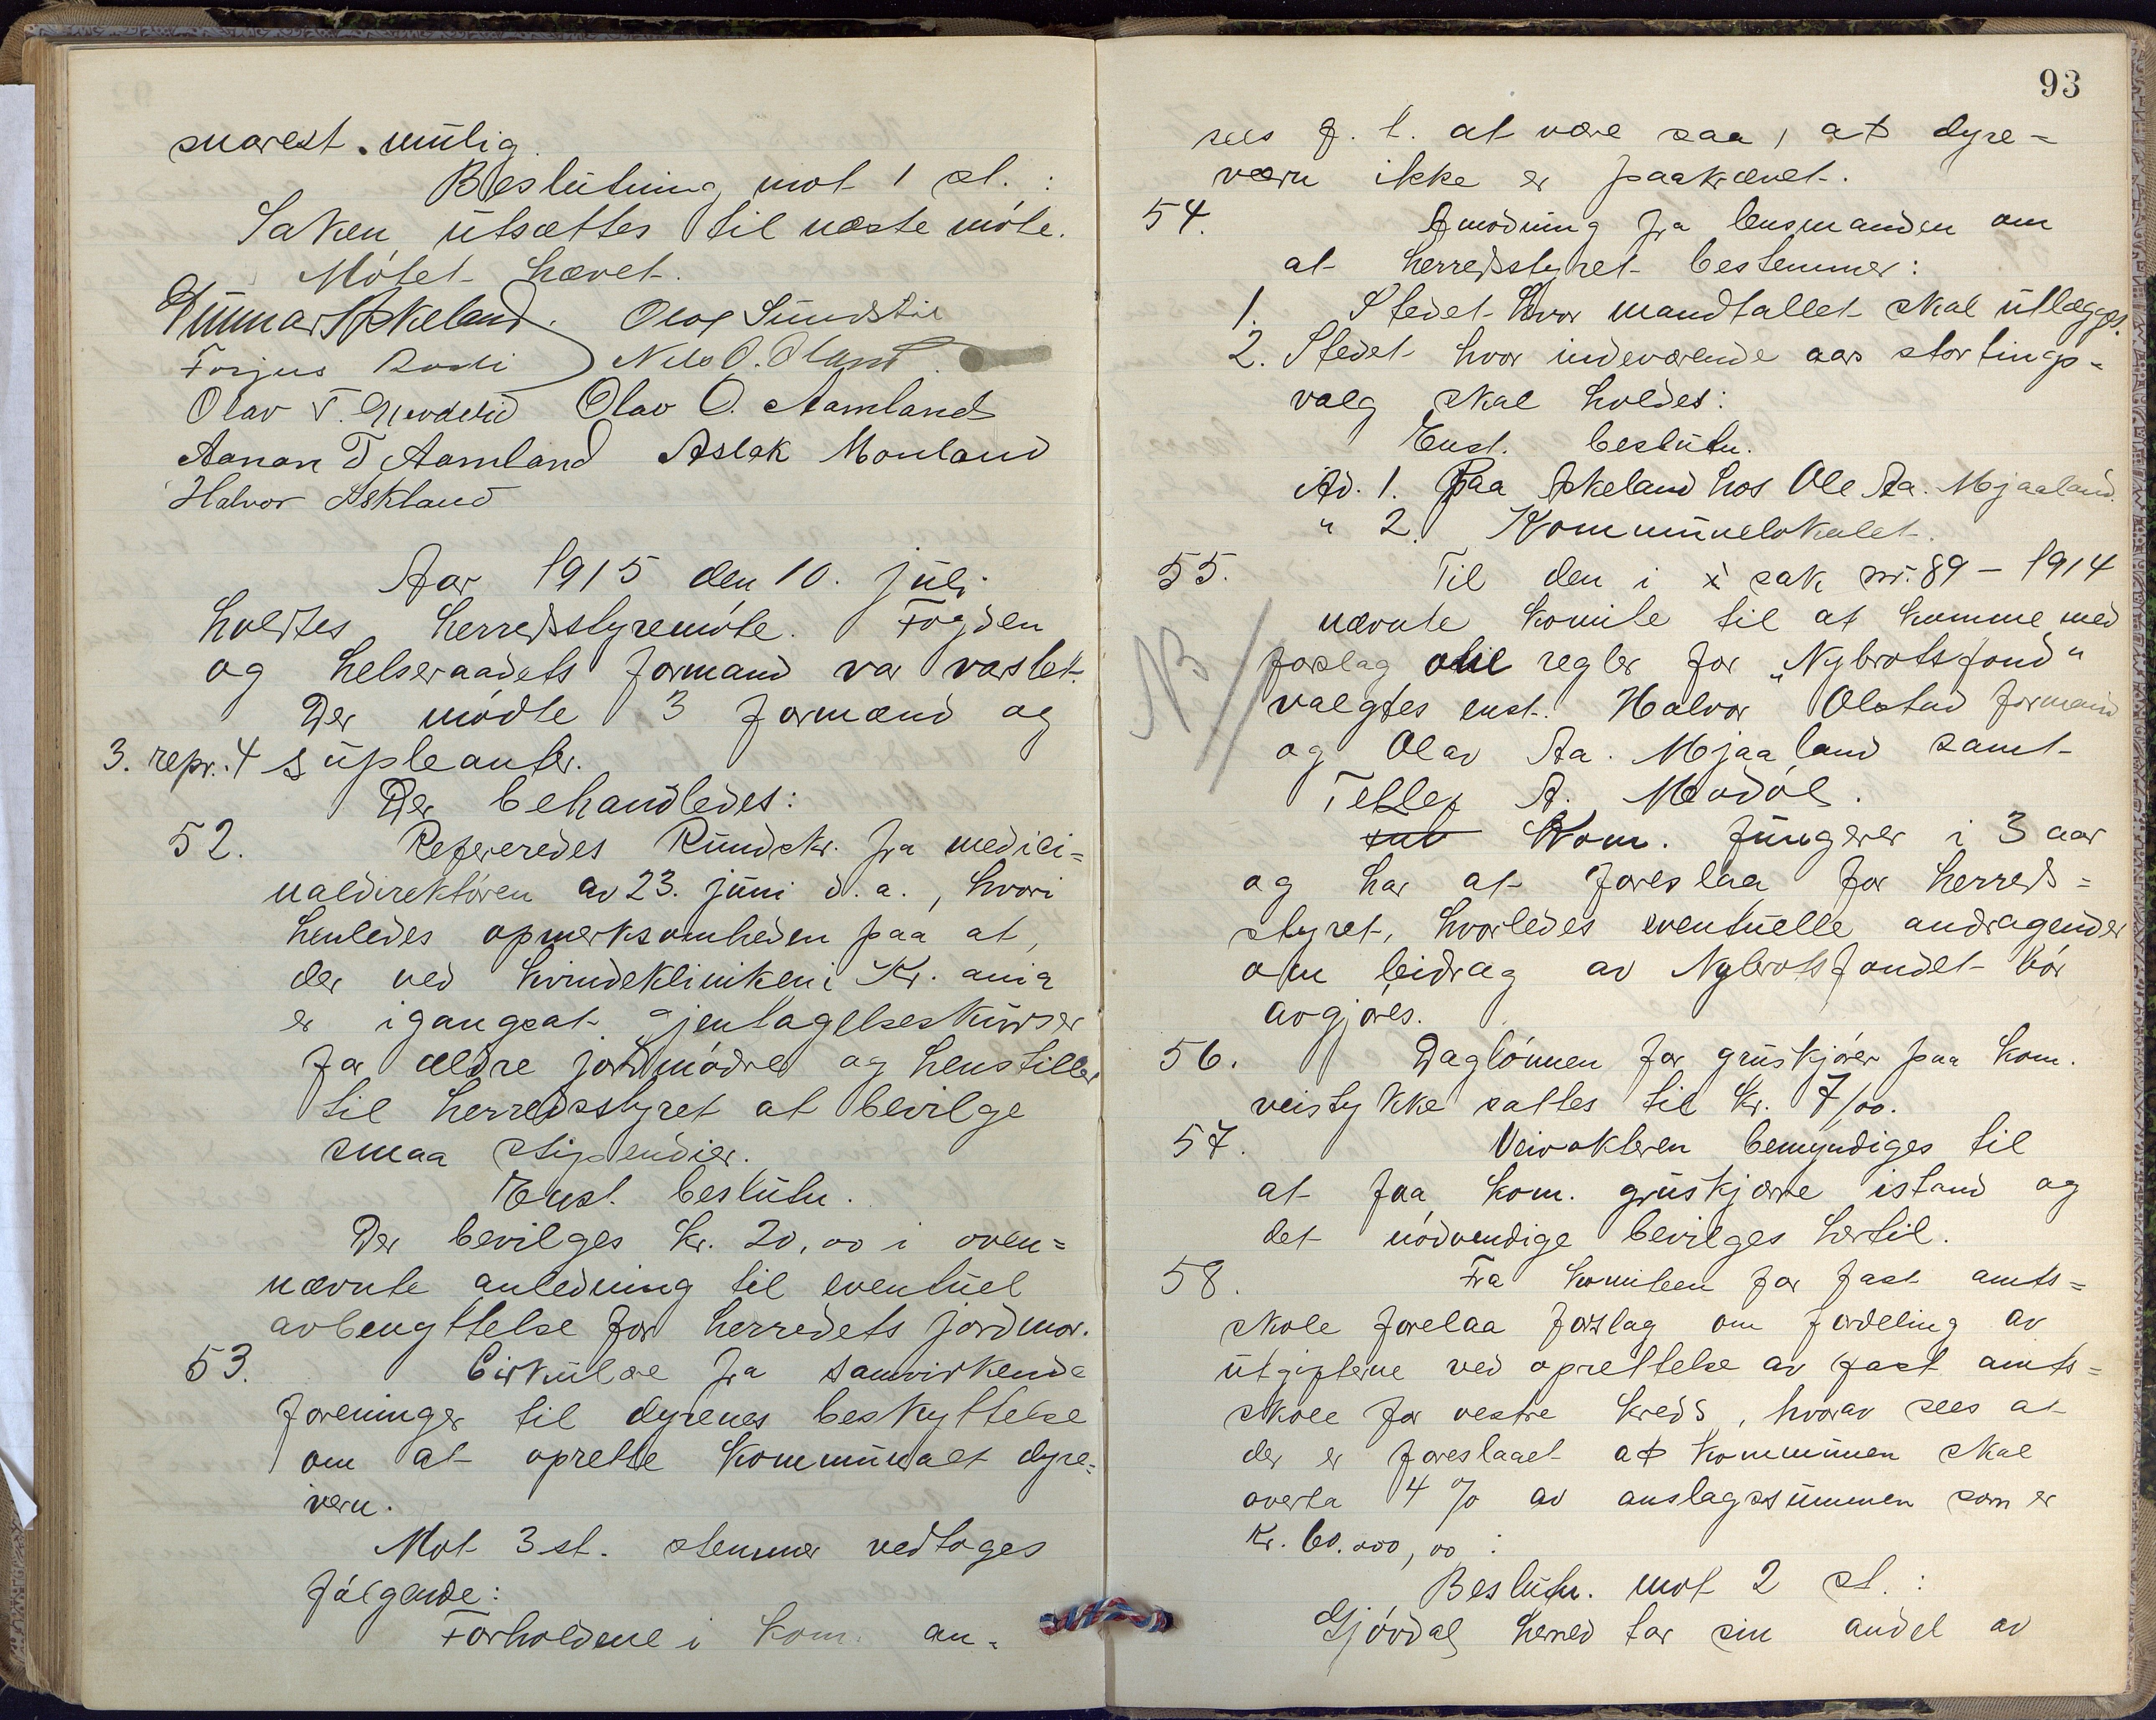 snarest mulig.
Beslutning mot 1 st. :
Saken utsættes til næste møte.
Møtet hævet.
Gunnar Askeland. Olav Sundstir
Torjus Nils O. Oland
Olav T. Olav O. Aamland
Aanan T Aamland Aslak Monland
Halvor Askland
Aar 1915 den 10. juli
holdtes herredsstyremøte. Fogden
og helseraadets formand var varslet.
Der mødte 3 formænd og
3. repr. 4 supleanter.
Der behandledes:
52. Refereredes Rundskr. fra medici=
naldirektøren av 23. juni d.a., hvori
henledes opmerksomheden paa at,
der ved kvindekliniken i Kr. ania
er igangsat gjentagelseskurser
for ældre jordmødre og henstiller
til herredsstyret at bevilge
smaa stipendier.
Enst. beslutn.
Der bevilges kr. 20,00 i oven=
nævnte anledning til eventuel
avbenyttelse for herredets jordmor.
53. Cirkulære fra samvirkende
foreninger til dyrenes beskyttelse
om at oprette kommunalt dyre=
vern.
Mot 3 st. stemmer vedtoges
følgende:
Forholdene i kom. an=
93
sees f. t. at være saa, at dyre=
værn ikke er paakrævet.
54. Anmodning fra lensmanden om
at herredsstyret bestemmer:
1. Stedet hvor mandtallet skal utlægges.
2. Stedet hvor indeværende aars stortings=
valg skal holdes:
Enst. beslutn.
Ad. 1. Paa Askeland hos Ole Aa. Mjaaland.
" 2. Kommunelokalet.
55. Til den i sak nr. 89 - 1914
nævnte komite til at komme med
NB
forslag til regler for „Nybrotsfond"
valgtes enst. Halvor Olstad formand
og Olav Aa. Mjaaland samt
Tellef A. Mødøl.
Kom. fungerer i 3 aar
og har at foreslaa for herreds=
styret, hvorledes eventuelle andragender
om bidrag av Nybrotsfondet bør
avgjøres.
56. Daglønnen for gruskjører paa kom.
veistykke sattes til kr. 7/00.
57. Veivokteren bemyndiges til
at faa kom. gruskjærre istand og
det nødvendige bevilges hertil.
58. Fra komiteen for fast amts=
skole forelaa forslag om fordeling av
utgifterne ved oprettelse av fast amts=
skole for vestre kreds, hvorav sees at
der er foreslaaet at kommunen skal
overta 4 % av anslagssummen som er
Kr. 60.000,00 :
Beslutn. mot 2 st. :
Gjøvdal herred tar sin andel av